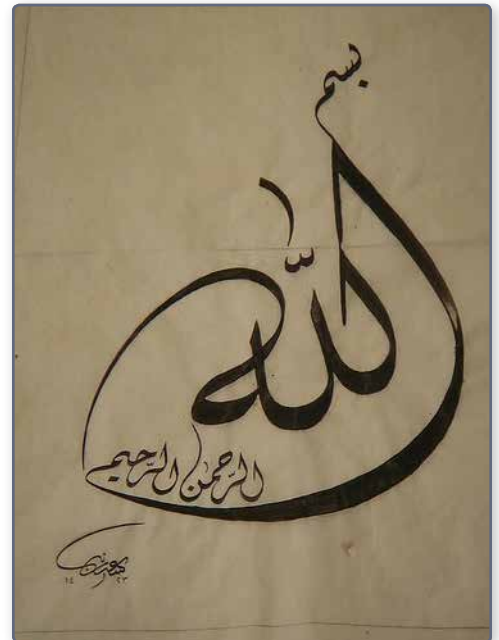 بسم
الله
الرّحمن الرّحيم
١٤ ٢٣